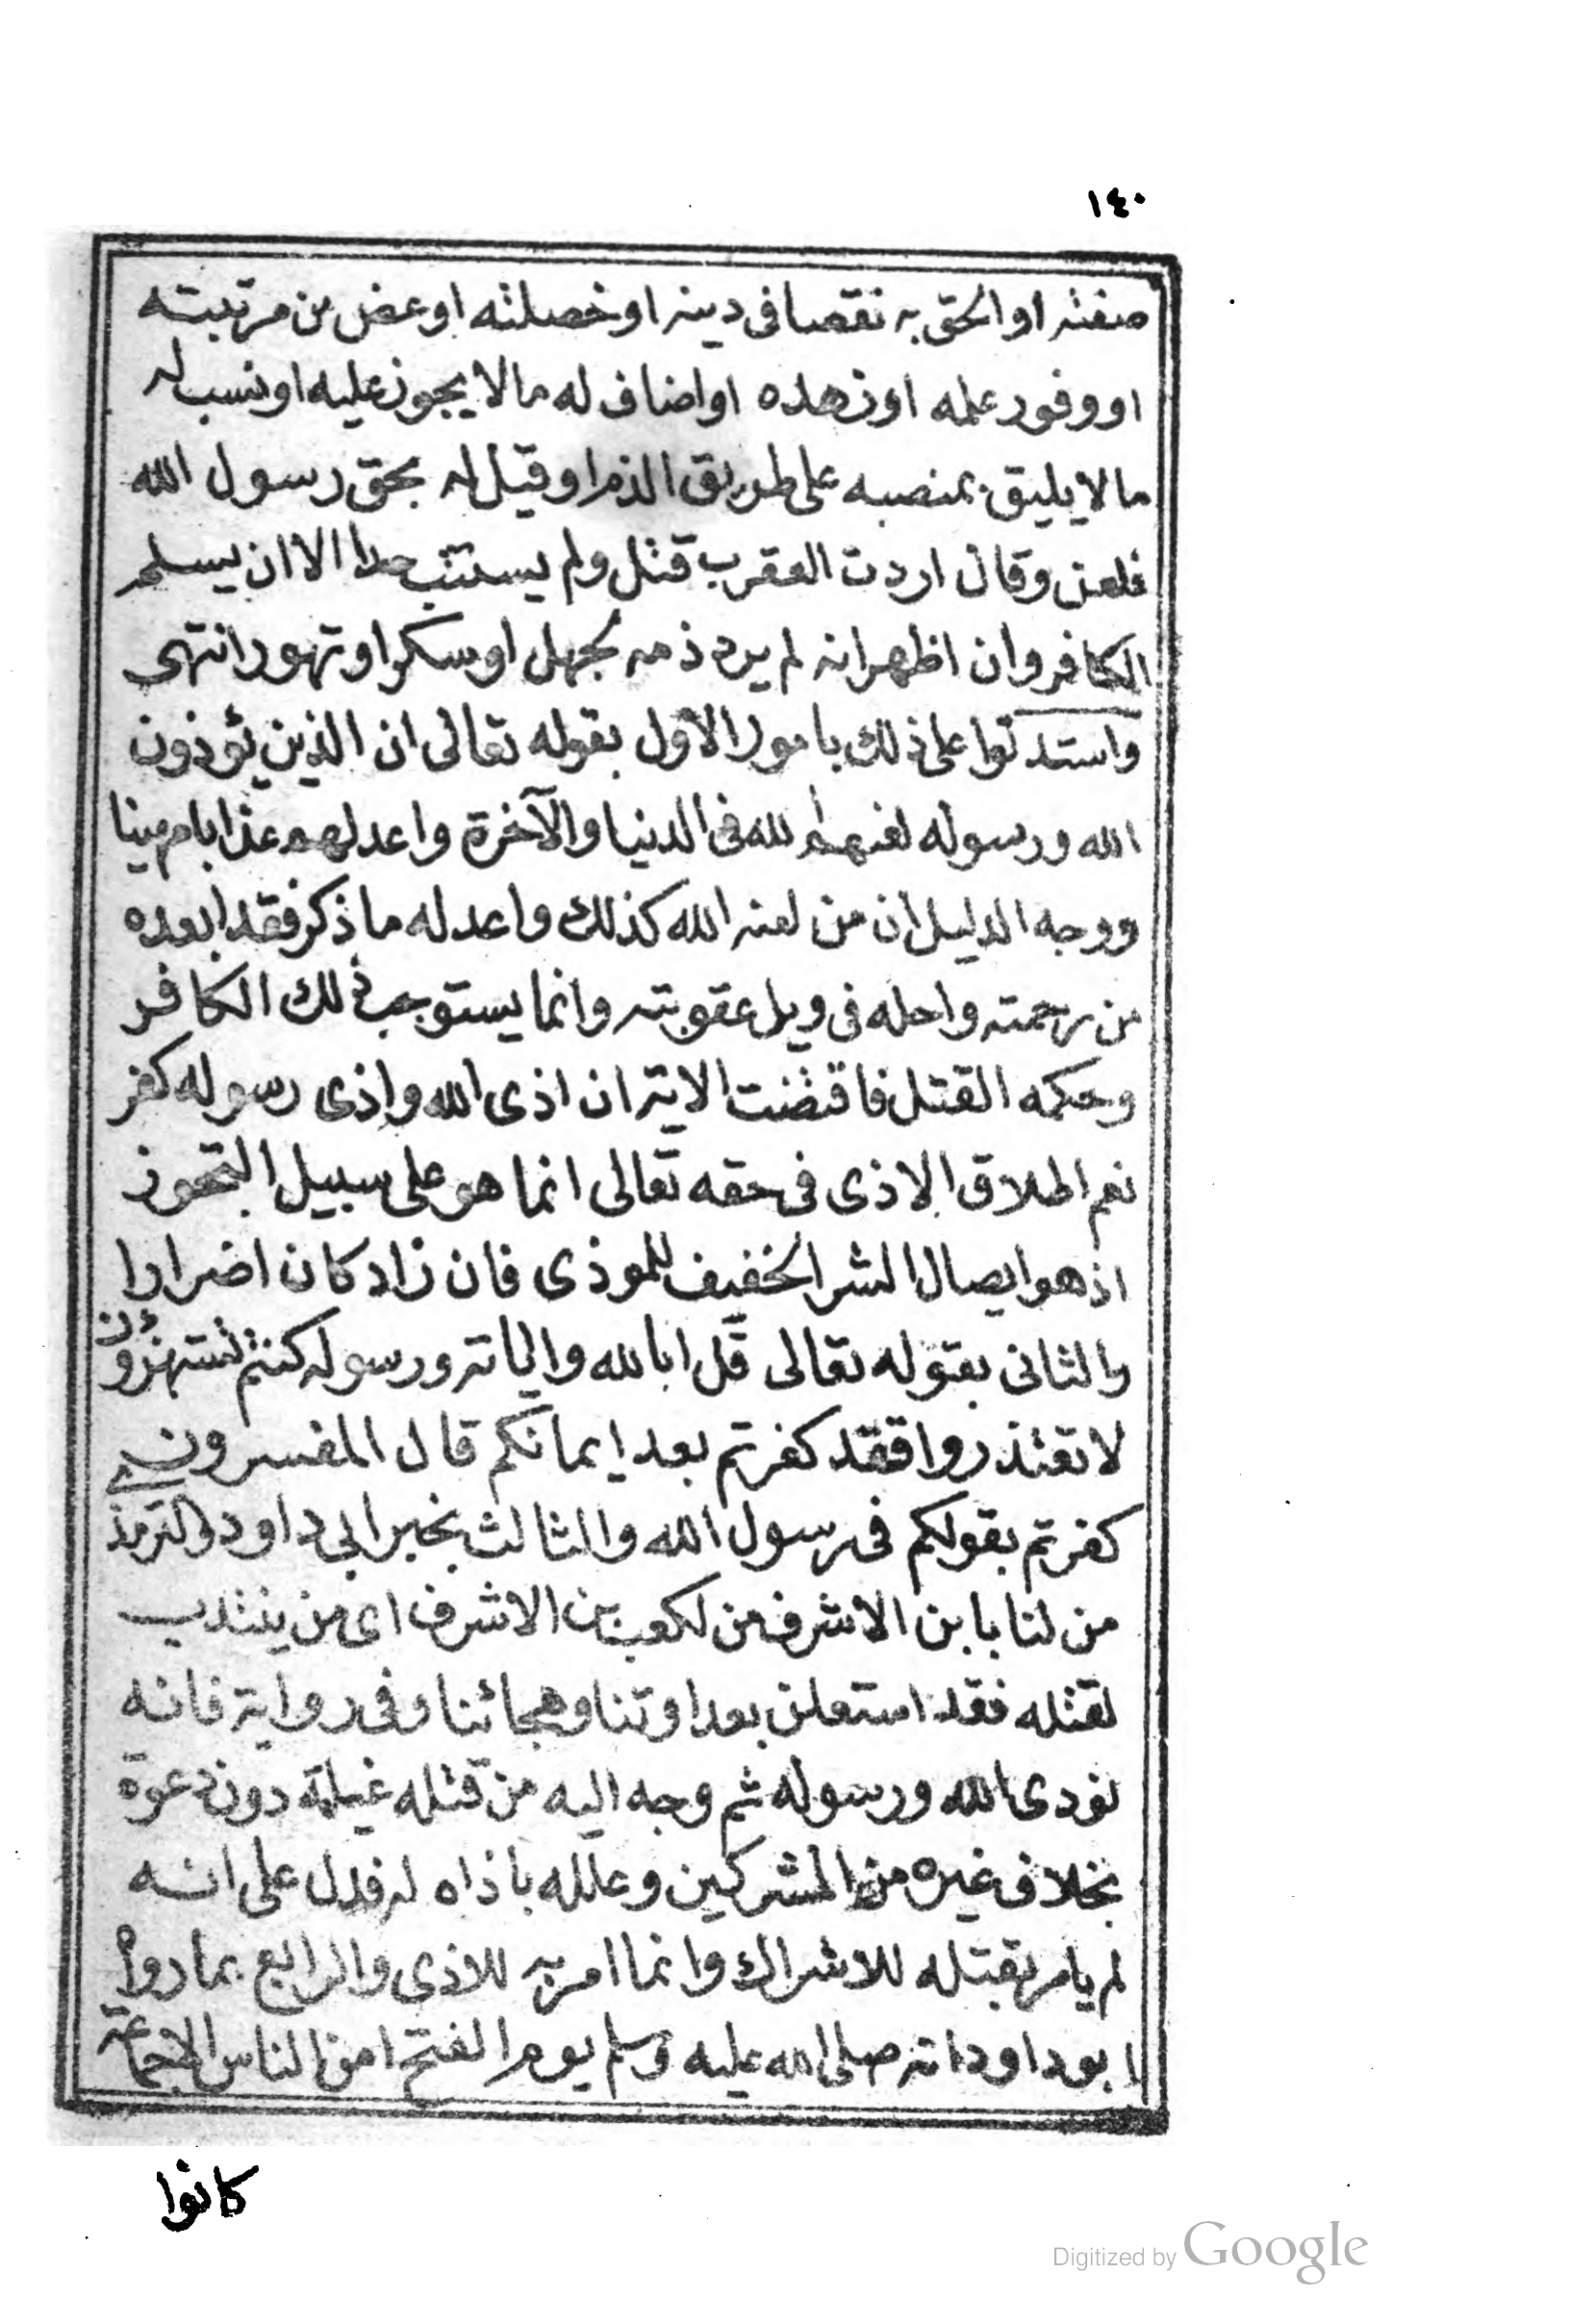 ١٤٠
صفته او الحق به نقصا فى دينه او خصلته او غض من مرتبته
او وفور علمه او زهده او اضاف له ما لا يجوز عليه او نسب له
ما لا يليق بمنصبه على طريق الذم او قيل له بحق رسول الله
فلعن وقال اردت العقرب قتل ولم يستتب حدا الا ان يسلم
الكافر وان اظهر انه لم يرد ذمه لجهل او سكر او تهور انتهى
واستدلوا على ذلك بامور الاول بقوله تعالى ان الذين يؤذون
الله ورسوله لعنهم الله فى الدنيا والآخرة واعد لهم عذابا مهينا
ووجه الدليل ان من لعنه الله كذلك واعد له ما ذكر فقد ابعده
من رحمته واحله فى وبيل عقوبته وانما يستوجب ذلك الكافر
وحكمه القتل فاقتضت الاية ان اذى الله واذى رسوله كفر
نعم اطلاق الاذى فى حقه تعالى انما هو على سبيل التجوز
اذ هو ايصال الشر الخفيف للموذى فان زاد كان اضرارا
والثانى بقوله تعالى قل ابالله واياته ورسوله كنتم تستهزؤن
لا تعتذروا قد كفرتم بعد ايمانكم قال المفسرون
كفرتم بقولكم فى رسول الله والثالث بخبر ابى داود والترمذى
من لنا بابن الاشرف من لكعب بن الاشرف اى من ينتدب
لقتله فقد استعلن بعداوتنا وهجائنا وفى رواية فانه
يؤذى الله ورسوله ثم وجه اليه من قتله غيلة دون دعوة
بخلاف غيره من المشركين وعلله باذاه له فدل على انه
لم يامر بقتله للاشراك وانما امر به للاذى والرابع بما رواه
ابو داود انه صلى الله عليه وسلم يوم الفتح امن الناس الا جماعة
كانوا
Digitized by Google